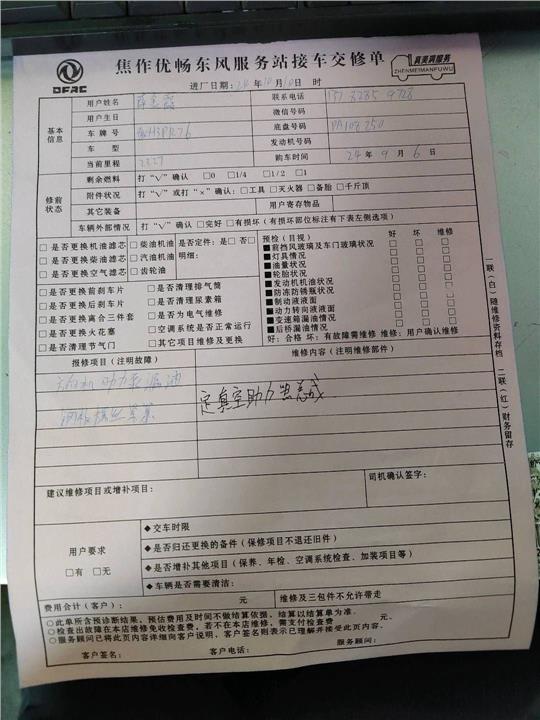 DFAC
焦作优畅东风服务站接车交修单
真美满服务
ZHENMEIMANFUWU
进厂日期:24年10月10日 时
基本信息
用户姓名 联系电话
用户生日 微信号码
车牌号 底盘号码
车型 发动机号码
当前里程 2227 购车时间 24年9月6日
修前状态
剩余燃料 打“√”确认 □0 □1/4 □1/2 □1
附件状况 打“√”或打“×”确认:□工具 □灭火器 □备胎 □千斤顶
其它装备 用户寄存物品
车辆外部情况 打“√”确认 □完好 □有损坏(有损坏部位标注有下表左侧选项)
□是否更换机油滤芯 □柴油机油 是否定件:是□ 否□
□是否更换柴油滤芯 □汽油机油 明细:
□是否更换空气滤芯 □齿轮油
□是否更换前刹车片 □是否清理排气筒
□是否更换后刹车片 □是否清理尿素箱
□是否更换离合三件套 □是否为电气维修
□是否更换火花塞 □空调系统是否正常运行
□是否清理节气门 □其它项目维修及更换
预检(目视) 好 坏 维修
■前挡风玻璃及车门玻璃状况 □ □ □
■灯具情况 □ □ □
■油量状况 □ □ □
■轮胎状况 □ □ □
■发动机机油状况 □ □ □
■防冻防锈瓶状况 □ □ □
■制动液液面 □ □ □
■动力转向液液面 □ □ □
■变速箱漏油情况 □ □ □
■后桥漏油情况 □ □ □
好:合格 坏:有故障需维修 维修:用户确认维修
报修项目(注明故障) 维修内容(注明维修部件)
助力泵漏油
定真空助力器总成
建议维修项目或增补项目: 司机确认签字:
用户要求
□有 □无
◆交车时限
◆是否归还更换的备件(保修项目不退还旧件)
◆是否增补其他项目(保养、年检、空调系统检查、加装项目等)
◆车辆是否需要清洁:
费用合计(客户): 元 维修及三包件不允许带走
○此单所含预诊断结果,预估费用及时间不做结算依据,结算以结算单为准。
○检查出故障在本店维修免收检查费,若不在本店维修,需支付检查费 元。
○服务顾问已将此页内容详细向客户说明,客户签名则表示已理解并接受此页内容。
客户签名: 客户电话: 服务顾问:
一联(白)随维修资料存档 二联(红)财务留存